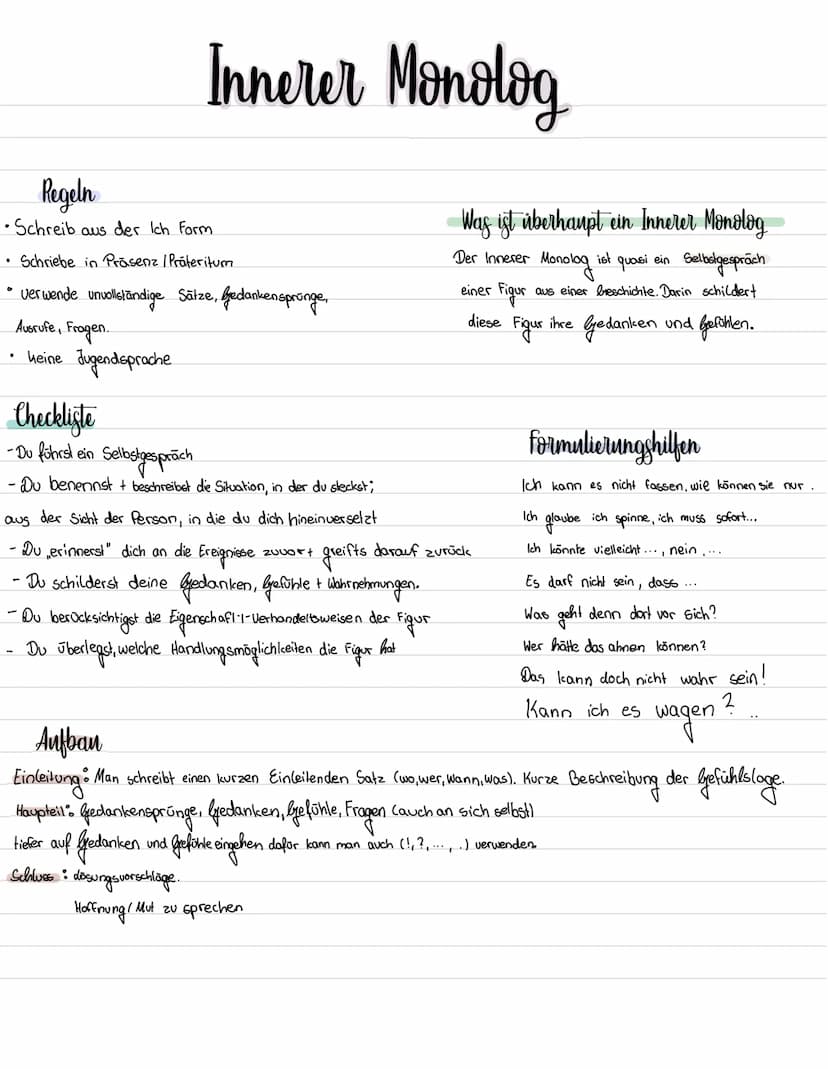 Innerer Monolog
Regeln
• Schreib aus der Ich Form
• Schriebe in Präsenz / Präteritum
• verwende unvollständige Sätze, Gedankensprünge,
Ausrufe, Fragen.
• keine Jugendsprache
Was ist überhaupt ein Innerer Monolog
Der Innerer Monolog ist quasi ein Selbstgespräch
einer Figur aus einer Geschichte. Darin schildert
diese Figur ihre Gedanken und Gefühlen.
Checkliste
- Du führst ein Selbstgespräch
- Du benennst + beschreibst die Situation, in der du steckst;
aus der Sicht der Person, in die du dich hineinversetzt
- Du „erinnerst" dich an die Ereignisse zuvor + greifts darauf zurück
- Du schilderst deine Gedanken, Gefühle + Wahrnehmungen.
- Du berücksichtigst die der Figur
- Du überlegst, welche Handlungsmöglichkeiten die Figur hat
Formulierungshilfen
Ich kann es nicht fassen, wie können sie nur .
Ich glaube ich spinne, ich muss sofort...
Ich könnte vielleicht ..., nein ,...
Es darf nicht sein, dass ...
Was geht denn dort vor sich?
Wer hätte das ahnen können?
Das kann doch nicht wahr sein!
Kann ich es wagen? ..
Aufbau
Einleitung: Man schreibt einen kurzen Einleitenden Satz (wo, wer, wann, was). Kurze Beschreibung der Gefühlslage.
Haupteil: Gedankensprünge, Gedanken, Gefühle, Fragen (auch an sich selbst)
tiefer auf Gedanken und Gefühle eingehen dafür kann man auch (!, ?, ..., .) verwenden
Schluss: Lösungsvorschläge.
Hoffnung / Mut zu sprechen